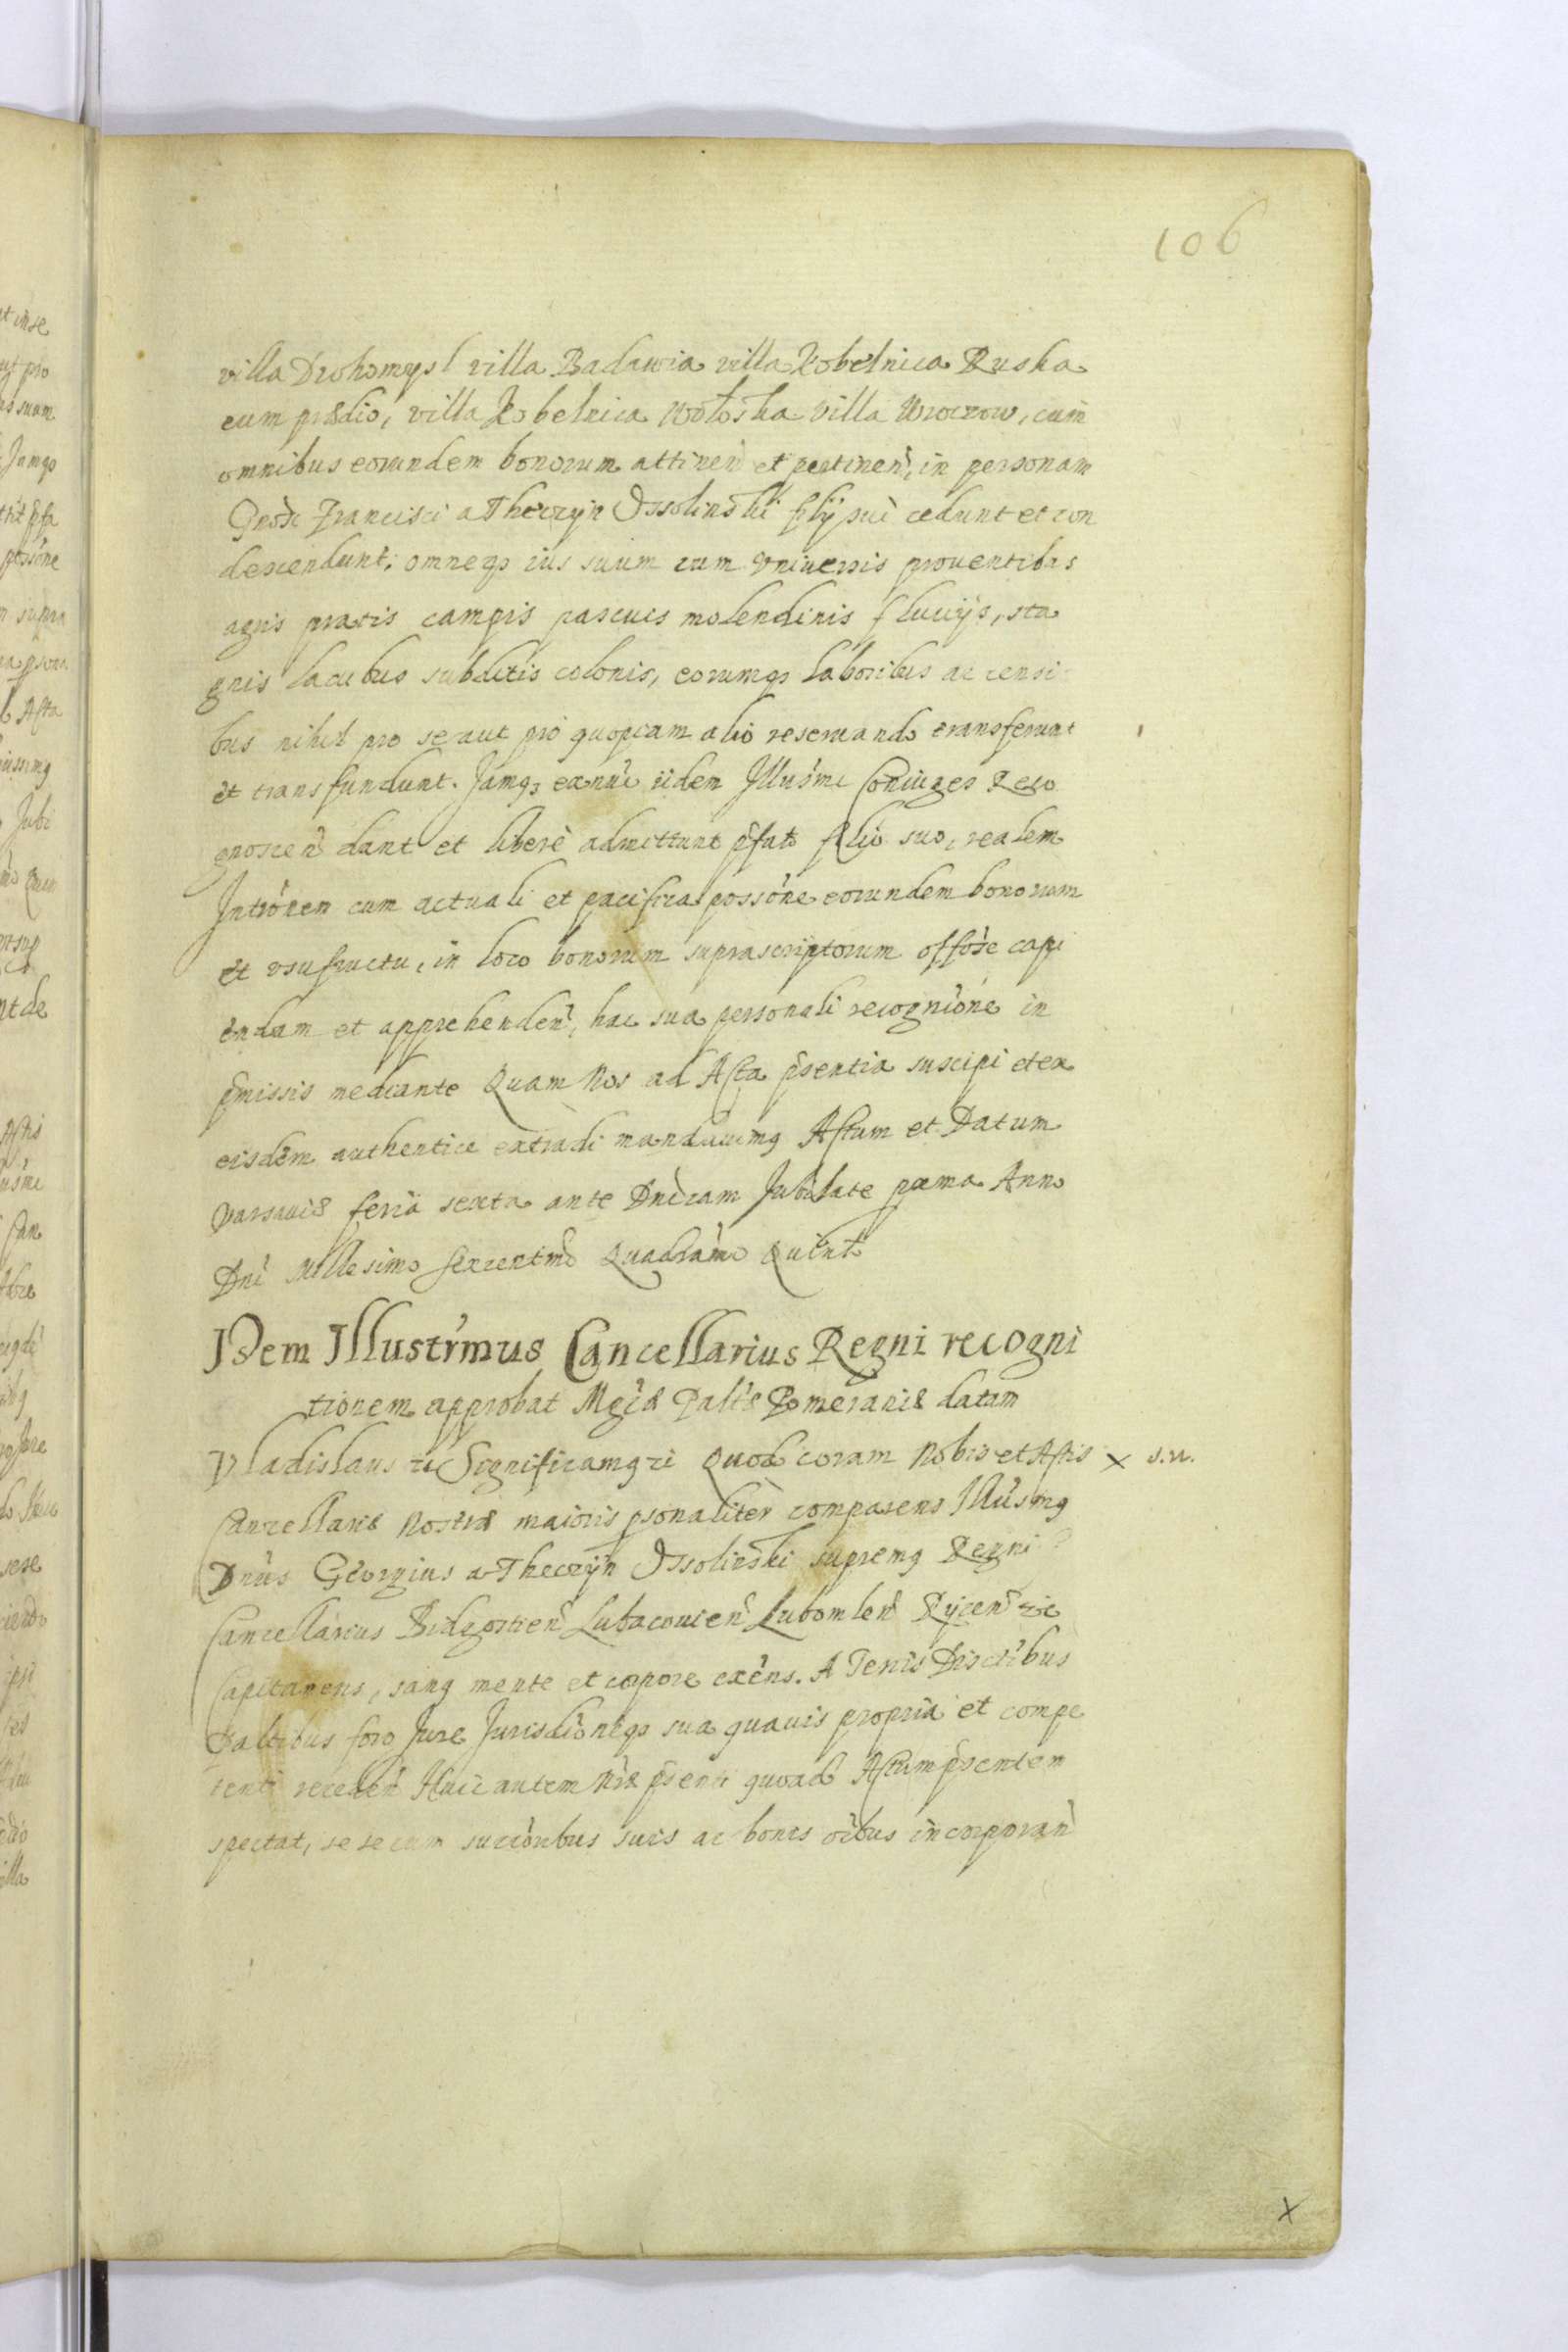 106
villa Drohomysl villa Badawia villa Kobelnica Ruska
cum prædio, villa Kobelnica Wołoska villa Wroczow, cum
omnibus eorundem bonorum attinen et pertinen, in personam
Gnosi Francisci a Theczyn Ossolinski filij sui cedunt et con
descendunt, omneqз ius suum cum vniuersis prouentibus
agris pratis campis pascuis molendinis fluuijs, sta
gnis lacubus subditis colonis, eorumqз laboribus ac censi
bus nihil pro se aut pro quopiam alio reseruando transferunt
et transfundunt. Jamqз ex nuc iidem Jllusmi Coniuges Reco
gnoscen dant et liberè admittunt pfato filio suo, realem
Intronem cum actuali et pacifica possone eorundem bonorum
et vsufructu, in loco bonorum suprascriptorum offose capi
endam et apprehenden, hac sua personali recognione in
pmissis mediante Quam Nos ad Acta psentia suscipi et ex
eisdem authentice extradi mandauimq Actum et Datum
Varsauiæ feria sexta ante Dnicam Jubilate pxma Anno
Dni Millesimo sexcentmo Quadramo Quinto
JDem Jllustrmus Cancellarius Regni recogni
tionem approbat Mgci Paltis Pomeraniæ datam
Vladislaus zc Significamq zi Quod coram Nobis et Actis x s.n.
Cancellariæ Nostræ maioris psonaliter comparens Jllusmq
Dnus Georgius a Theczyn Ossolinski supremq Regni
Cancellarius Bidgostien Lubaczouien Lubomlen Ryczen zc
Capitaneus, sanq mente et corpore exens. A Tenis Disctibus
Paltibus foro Jure Jurisdioneqз sua quauis propria et compe
tenti receden Huic autem Nræ psenti quoad Actum psentem
spectat, se se cum succoribus suis ac bonis oibus incorporan
x